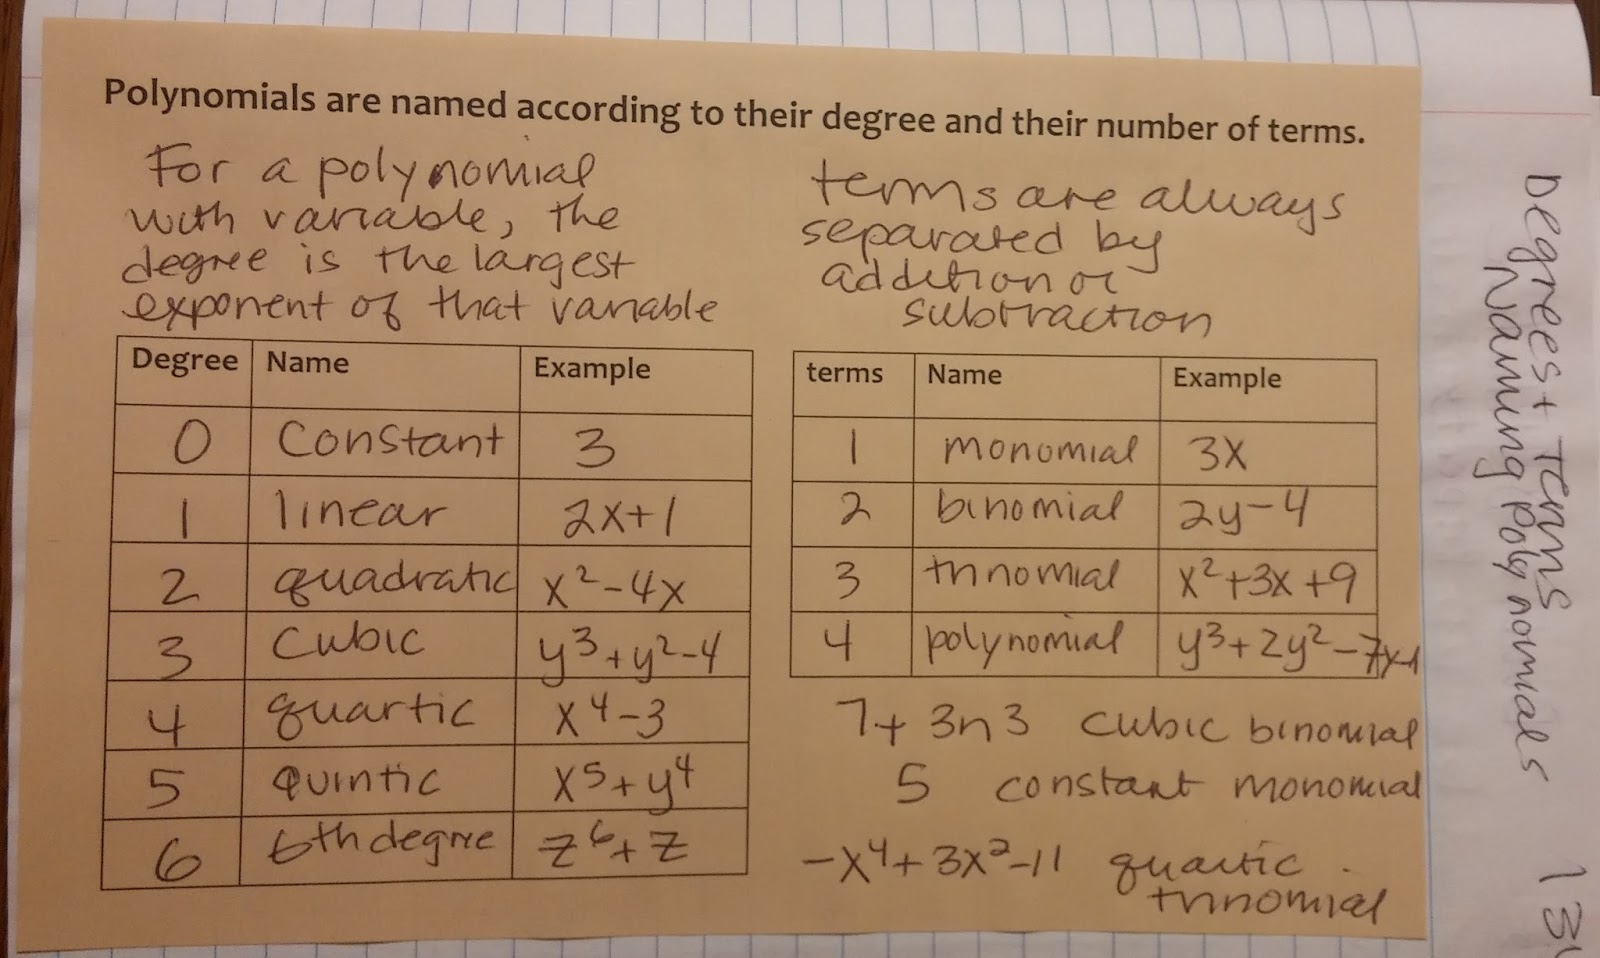 Polynomials are named according to their degree and their number of terms.
For a polynomial
with variable, the
degree is the largest
exponent of that variable
terms are always
separated by
addition or
subtraction
Degree Name Example
0 Constant 3
1 linear 2x+1
2 quadratic x²-4x
3 Cubic y³+y²-4
4 quartic x⁴-3
5 Quintic x⁵+y⁴
6 6th degree z⁶+z
terms Name Example
1 monomial 3x
2 binomial 2y-4
3 trinomial x²+3x+9
4 polynomial y³+2y²-7x-1
7+3n3 cubic binomial
5 constant monomial
-x⁴+3x²-11 quartic
trinomial
Degrees + Terms
Naming Polynomials